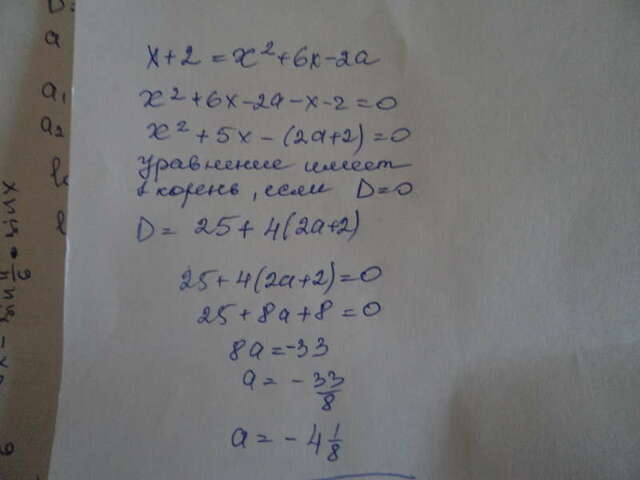 x+2=x²+6x-2a
x²+6x-2a-x-2=0
x²+5x-(2a+2)=0
уравнение имеет
1 корень, если D=0
D= 25+4(2a+2)
25+4(2a+2)=0
25+8a+8=0
8a=-33
a= - 33/8
a= - 4 1/8
D:
a
a₁
a₂